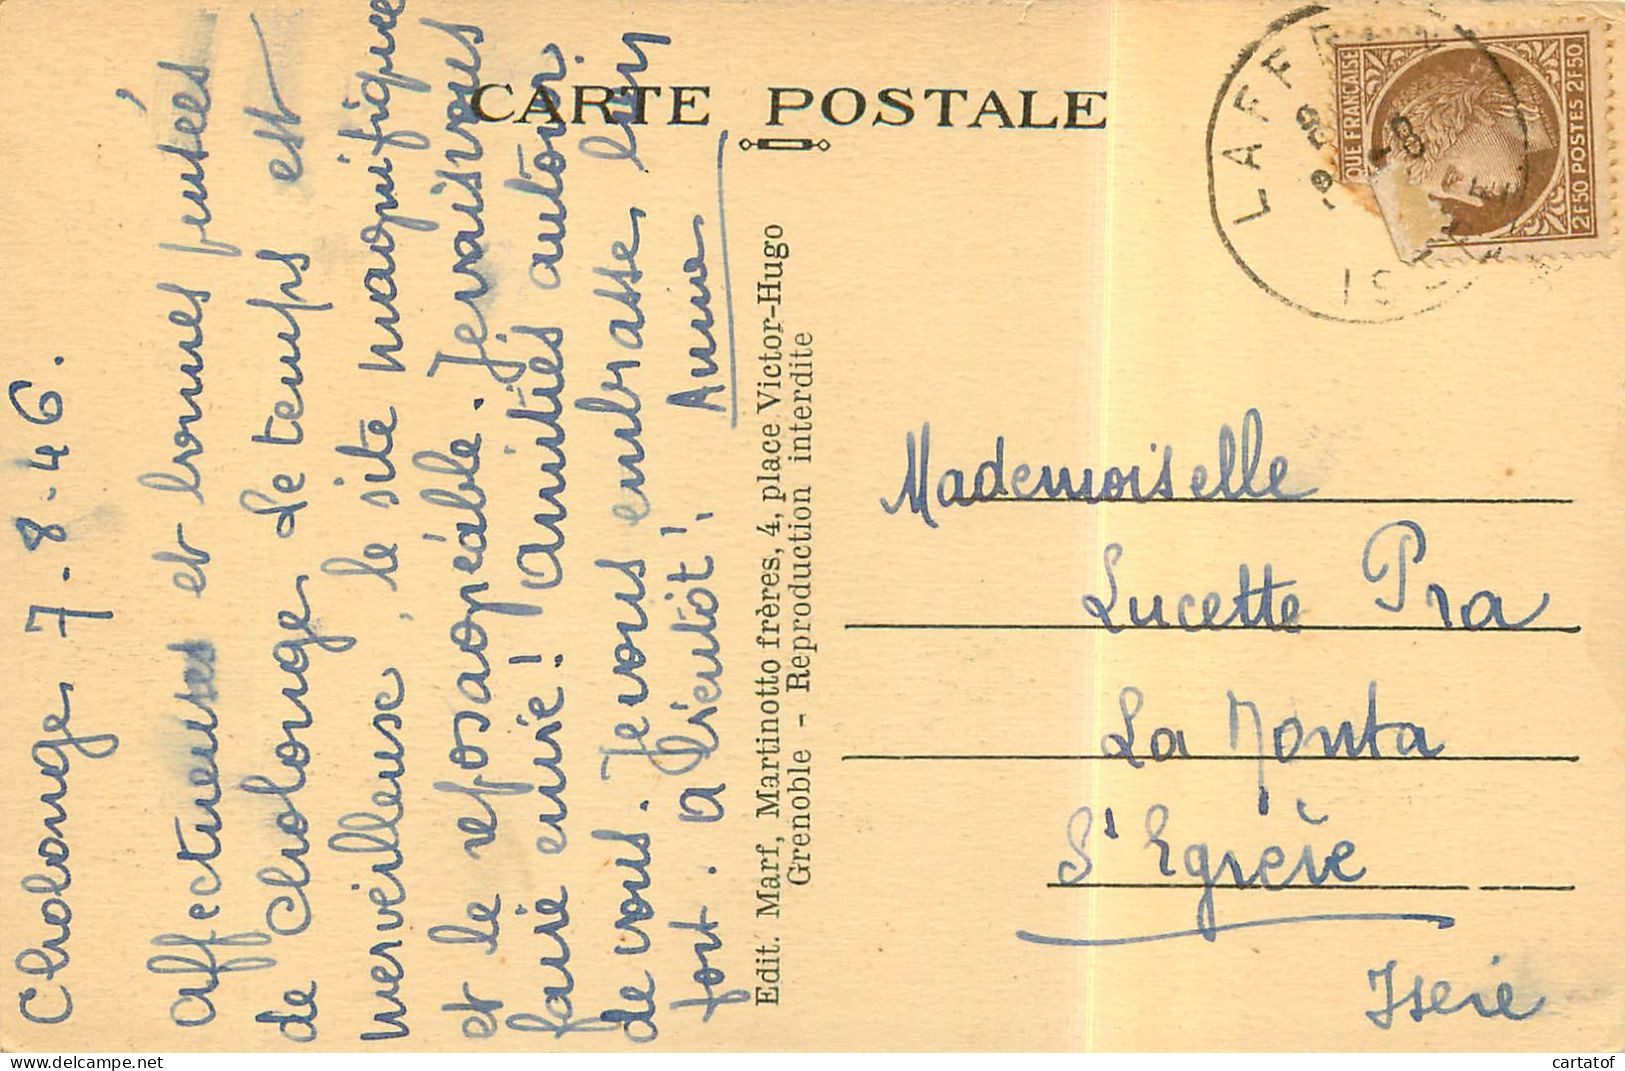 Cholonge, 7-8-46.
Affectueuses et bonnes pensées
de Cholonge. Le temps est
merveilleux, le site magnifique
et le repos agréable. Je vais vous
faire envie! amitiés autour
de vous. Je vous embrasse bien
fort. a bientôt!
Annie
CARTE POSTALE
Edit. Marf, Martinotto frères, 4, place Victor-Hugo
Grenoble - Reproduction interdite
LAFFREY
ISÈRE
QUE FRANÇAISE
2F50 POSTES 2F50
Mademoiselle
Lucette Pra
La Monta
St Egrève
Isère
cartatof